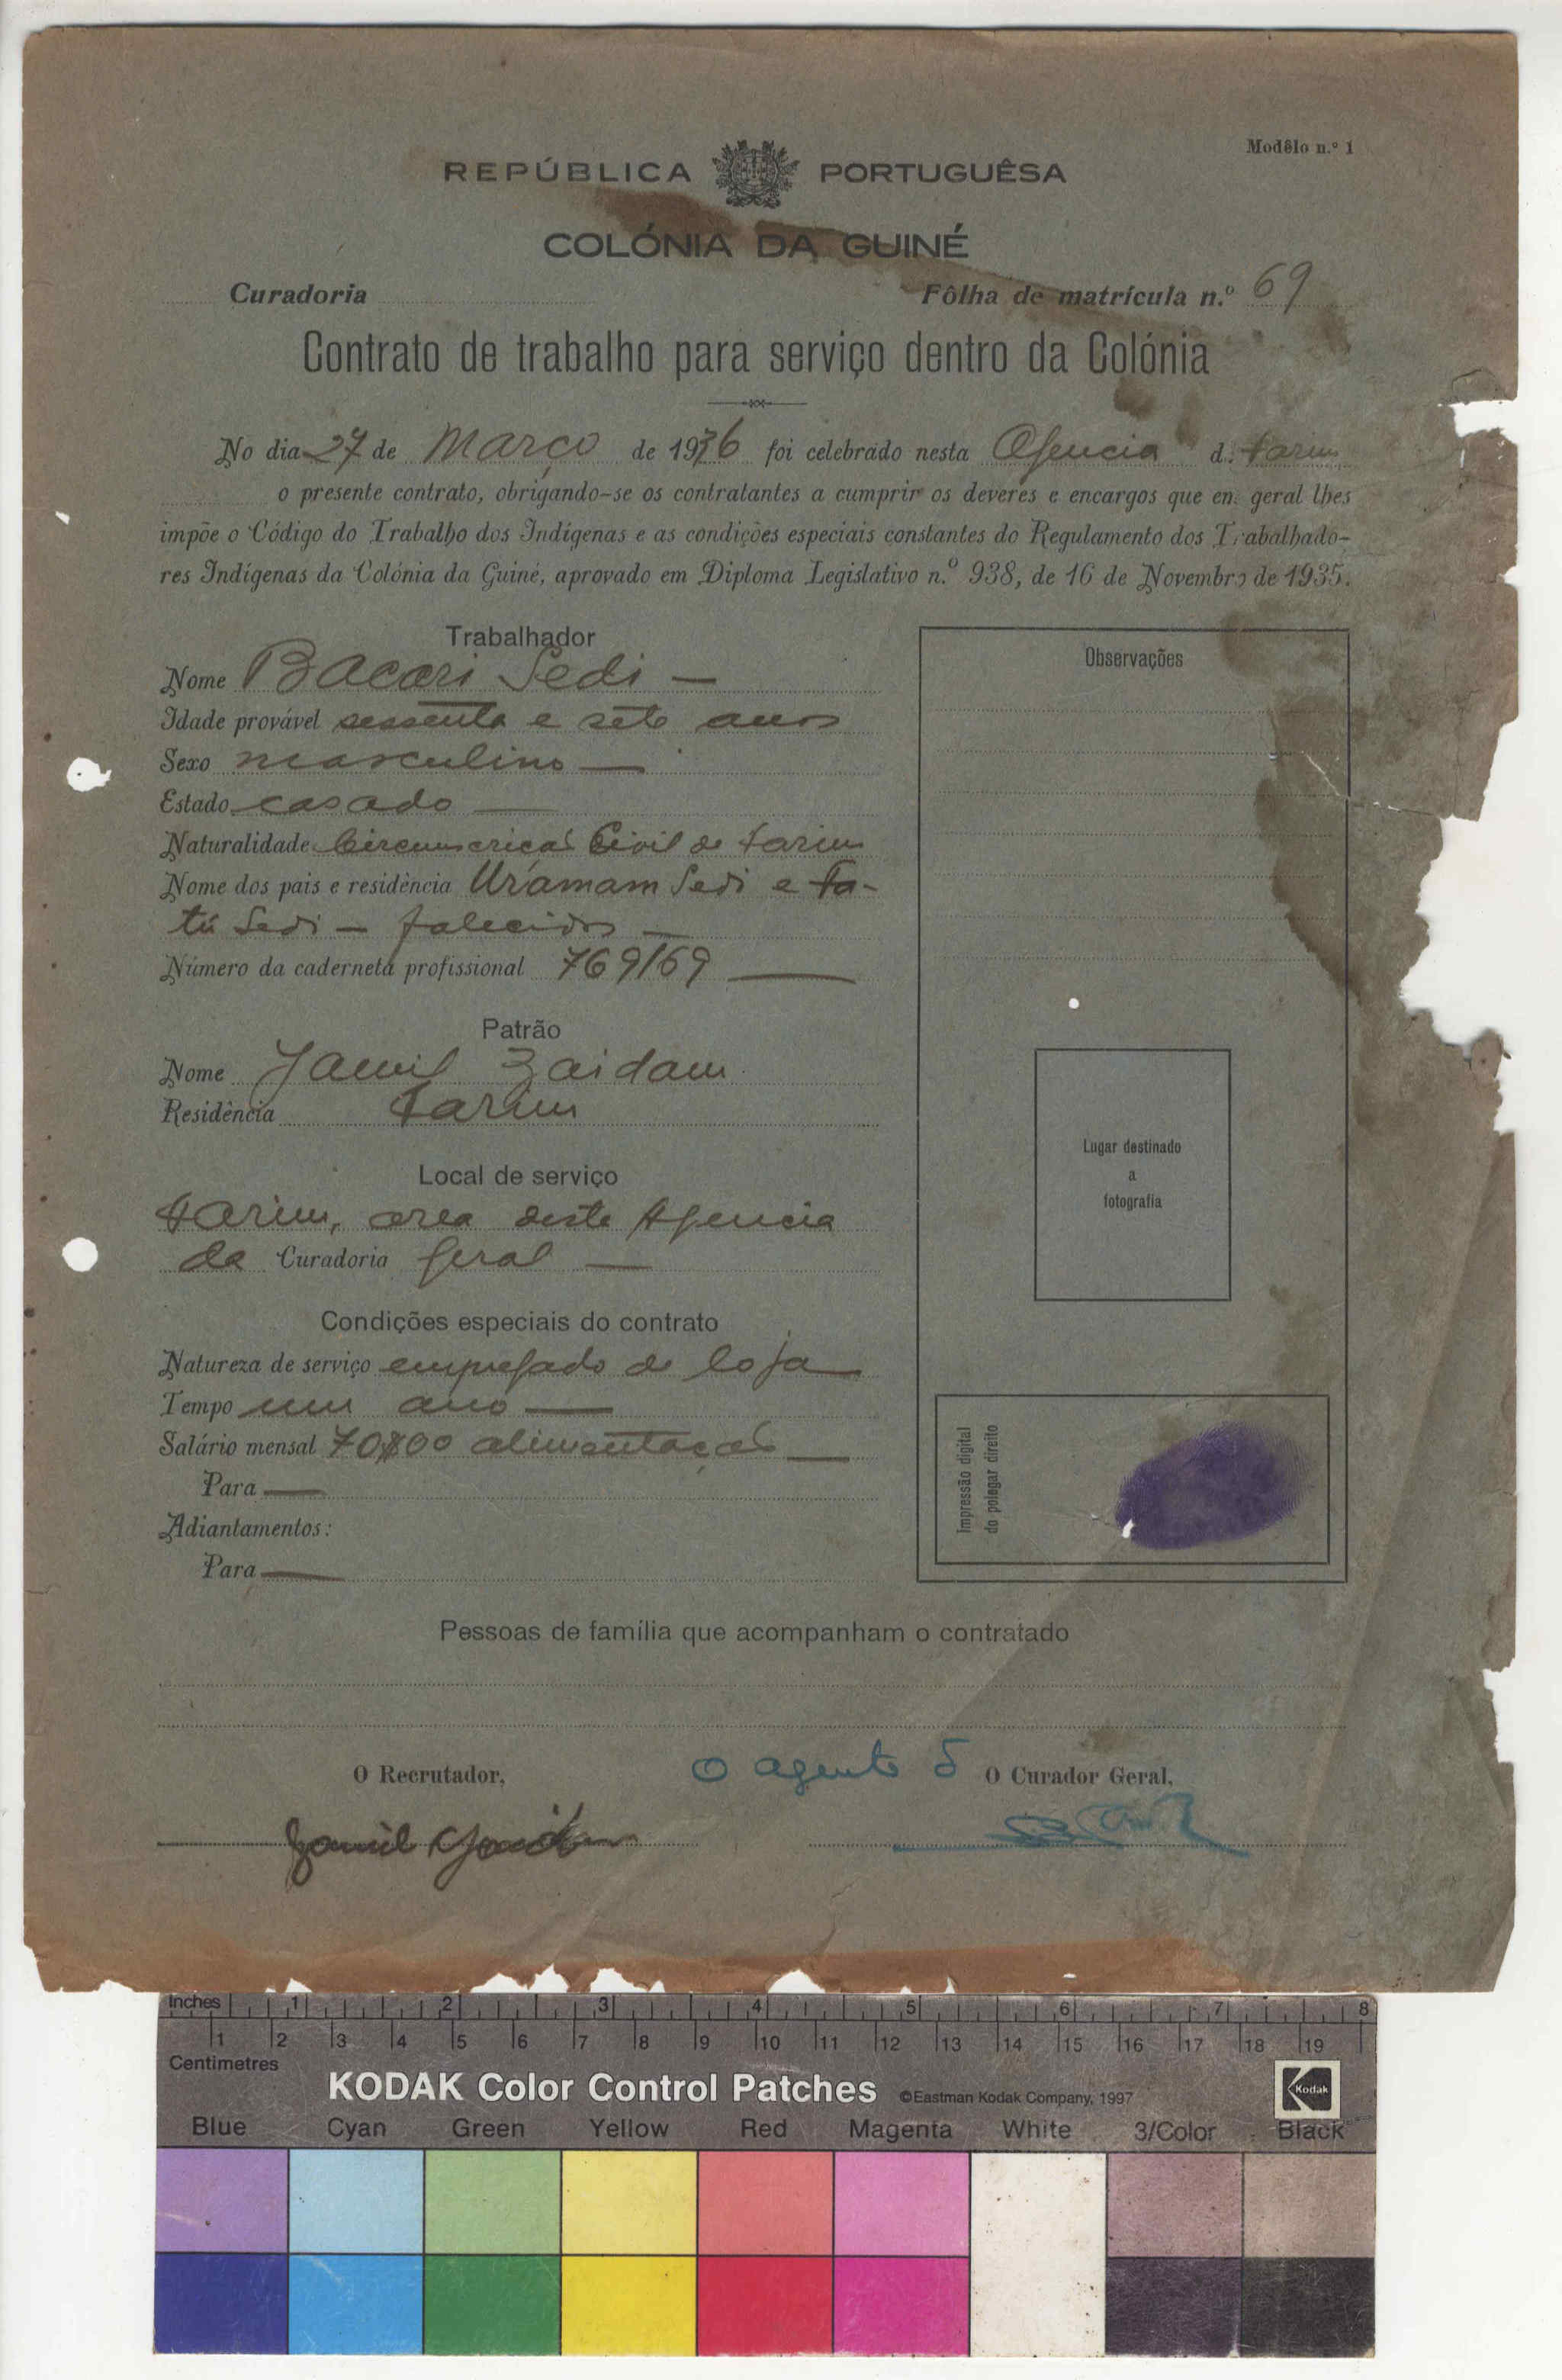 Modêlo n.º 1
REPÚBLICA PORTUGUÊSA
COLÓNIA DA GUINÉ
Curadoria Fôlha de matrícula n.º 69
Contrato de trabalho para serviço dentro da Colónia
No dia 27 de Março de 1936 foi celebrado nesta Agencia de Farim
o presente contrato, obrigando-se os contratantes a cumprir os deveres e encargos que em geral lhes
impõe o Código do Trabalho dos Indígenas e as condições especiais constantes do Regulamento dos Trabalhado-
res Indígenas da Colónia da Guiné, aprovado em Diploma Legislativo n.º 938, de 16 de Novembro de 1935.
Trabalhador
Nome Bacari Sedi —
Idade provável sessenta e sete anos
Sexo masculino —
Estado casado —
Naturalidade Circunscrição Civil de Farim
Nome dos pais e residência Uramam Sedi e Fa-
tú Sedi — falecidos —
Número da caderneta profissional 769/69 —
Patrão
Nome Jamil Zaidam
Residência Farim
Local de serviço
Farim, area desta Agencia
da Curadoria Geral —
Condições especiais do contrato
Natureza de serviço empregado de loja
Tempo um ano —
Salário mensal 70$00 alimentação —
Para —
Adiantamentos:
Para —
Observações
Lugar destinado
a
fotografia
Impressão digital
do polegar direito
Pessoas de família que acompanham o contratado
O Recrutador, O agente O Curador Geral,
Jamil
Inches 1 2 3 4 5 6 7 8
1 2 3 4 5 6 7 8 9 10 11 12 13 14 15 16 17 18 19
Centimetres
KODAK Color Control Patches ©Eastman Kodak Company, 1997 Kodak
Blue Cyan Green Yellow Red Magenta White 3/Color Black